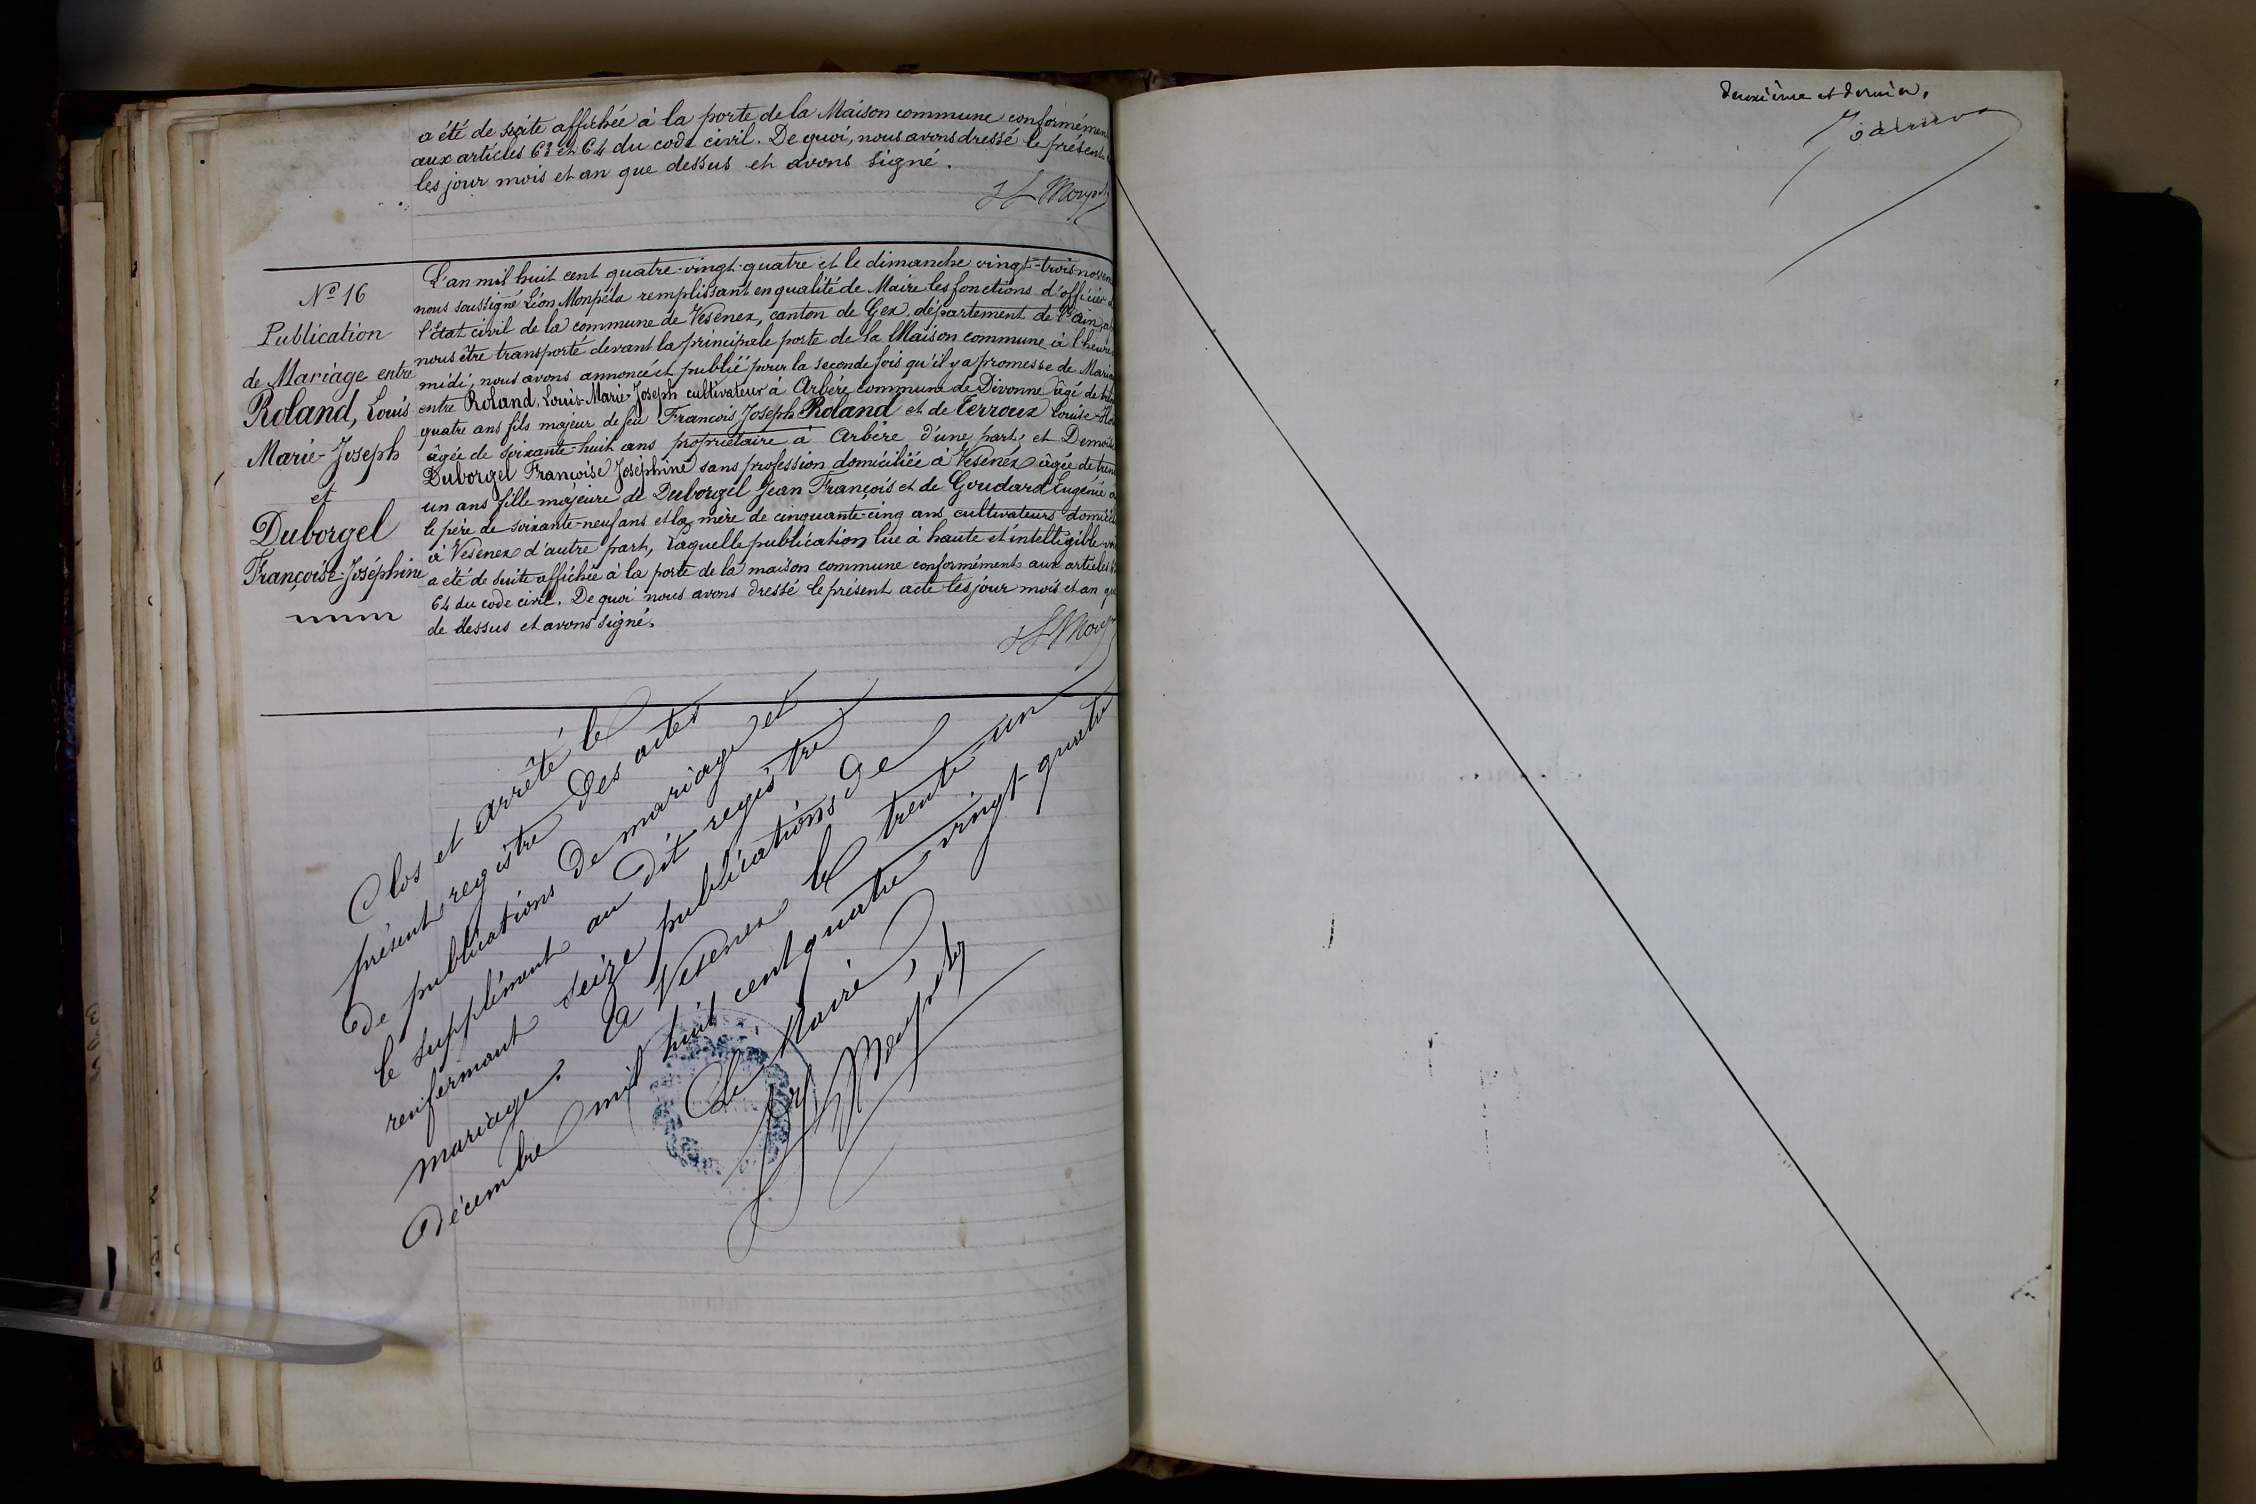 a été de suite affichée à la porte de la Maison commune conformémen
aux articles 63 et 64 du code civil. De quoi, nous avons dressé le présent
les jour mois et an que dessus et avons signé.
Nº 16
Publication
de Mariage entre
Roland, Louis
Marie-Joseph
et
Duborgel
Françoise-Joséphine
L'an mil huit cent quatre-vingt-quatre et le dimanche vingt-trois novem
nous soussigné Léon Monpéla remplissant en qualité de Maire les fonctions d'officier
l'Etat civil de la commune de Vesenex, canton de Gex, département de l'Ain,
nous être transporté devant la principale porte de la Maison commune à l'heure
midi, nous avons annoncé et publié pour la seconde fois qu'il y a promesse de Maria
entre Roland, Louis-Marie-Joseph cultivateur à Arbère commune de Divonne âgé de
quatre ans fils majeur de feu François Joseph Roland et de Terroux Louise
âgée de soixante-huit ans propriétaire à Arbère d'une part; et Demoise
Duborgel Françoise Joséphine sans profession domiciliée à Vesenex âgée de tren
un ans fille majeure de Duborgel Jean François et de Goudard Eugénie
le père de soixante-neuf ans et la mère de cinquante-cinq ans cultivateurs domici
à Vesenex d'autre part, laquelle publication lue à haute et intelligible
a été de suite affichée à la porte de la maison commune conformément aux articles
64 du code civil. De quoi nous avons dressé le présent acte les jour mois et an que
de dessus et avons signé.
Clos et arrêté le
présent registre des actes
de publications de mariage et
le supplément au dit registre
renfermant seize publications de
mariage. A Vesenex le trente-un
Décembre mil huit cent quatre vingt-quatre
Le Maire,
deuxième et dernier.